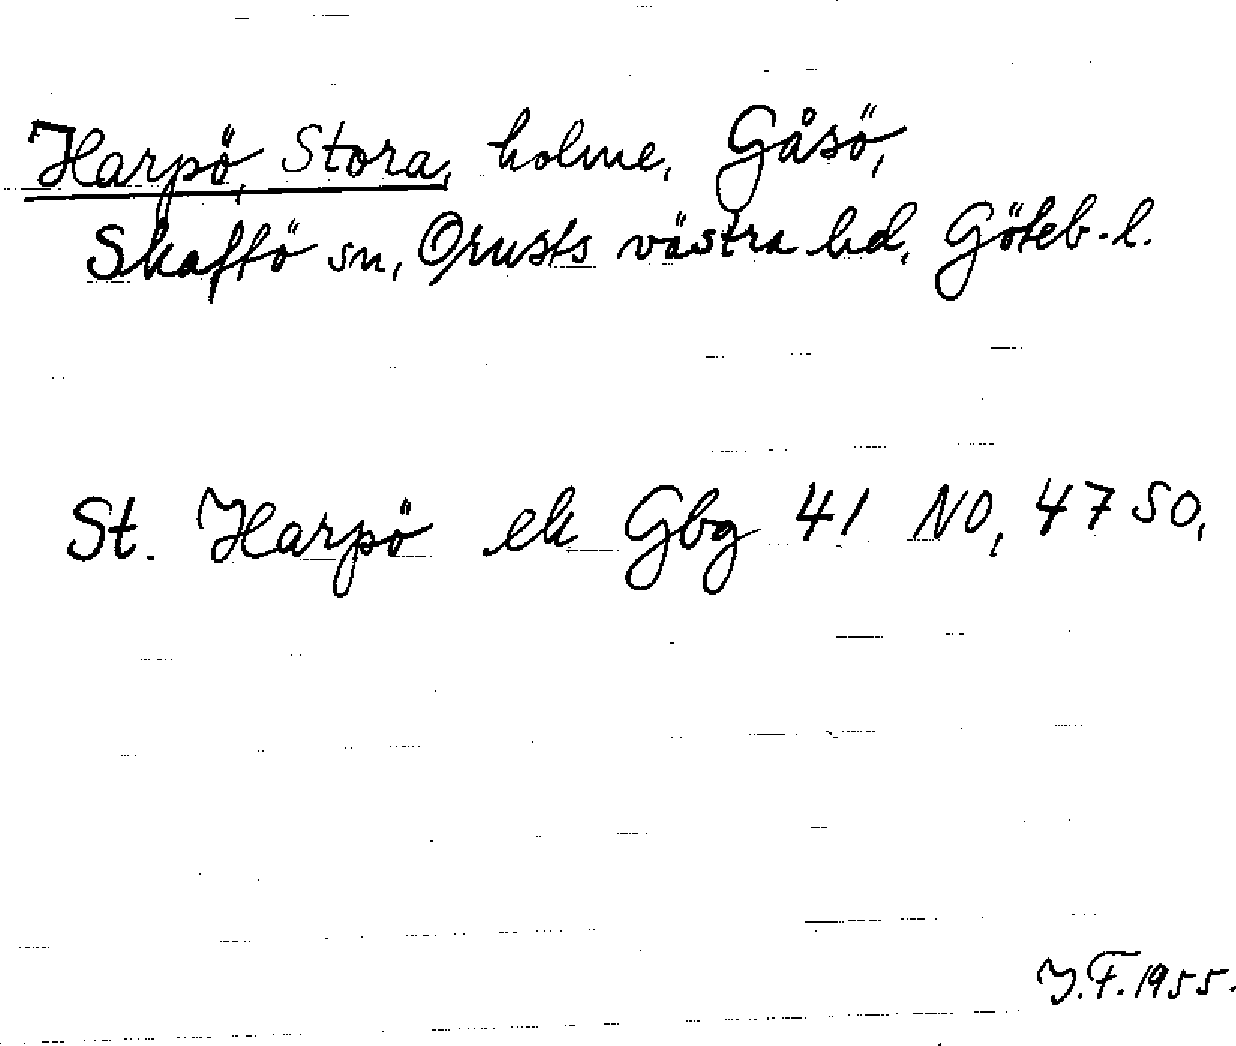 Harpö, Stora, holme, Gåsö,
Skaftö sn, Orusts västra hd, Göteb.l.
St. Harpö ek Gbg 41 NO, 47 SO,
J.F. 1955.